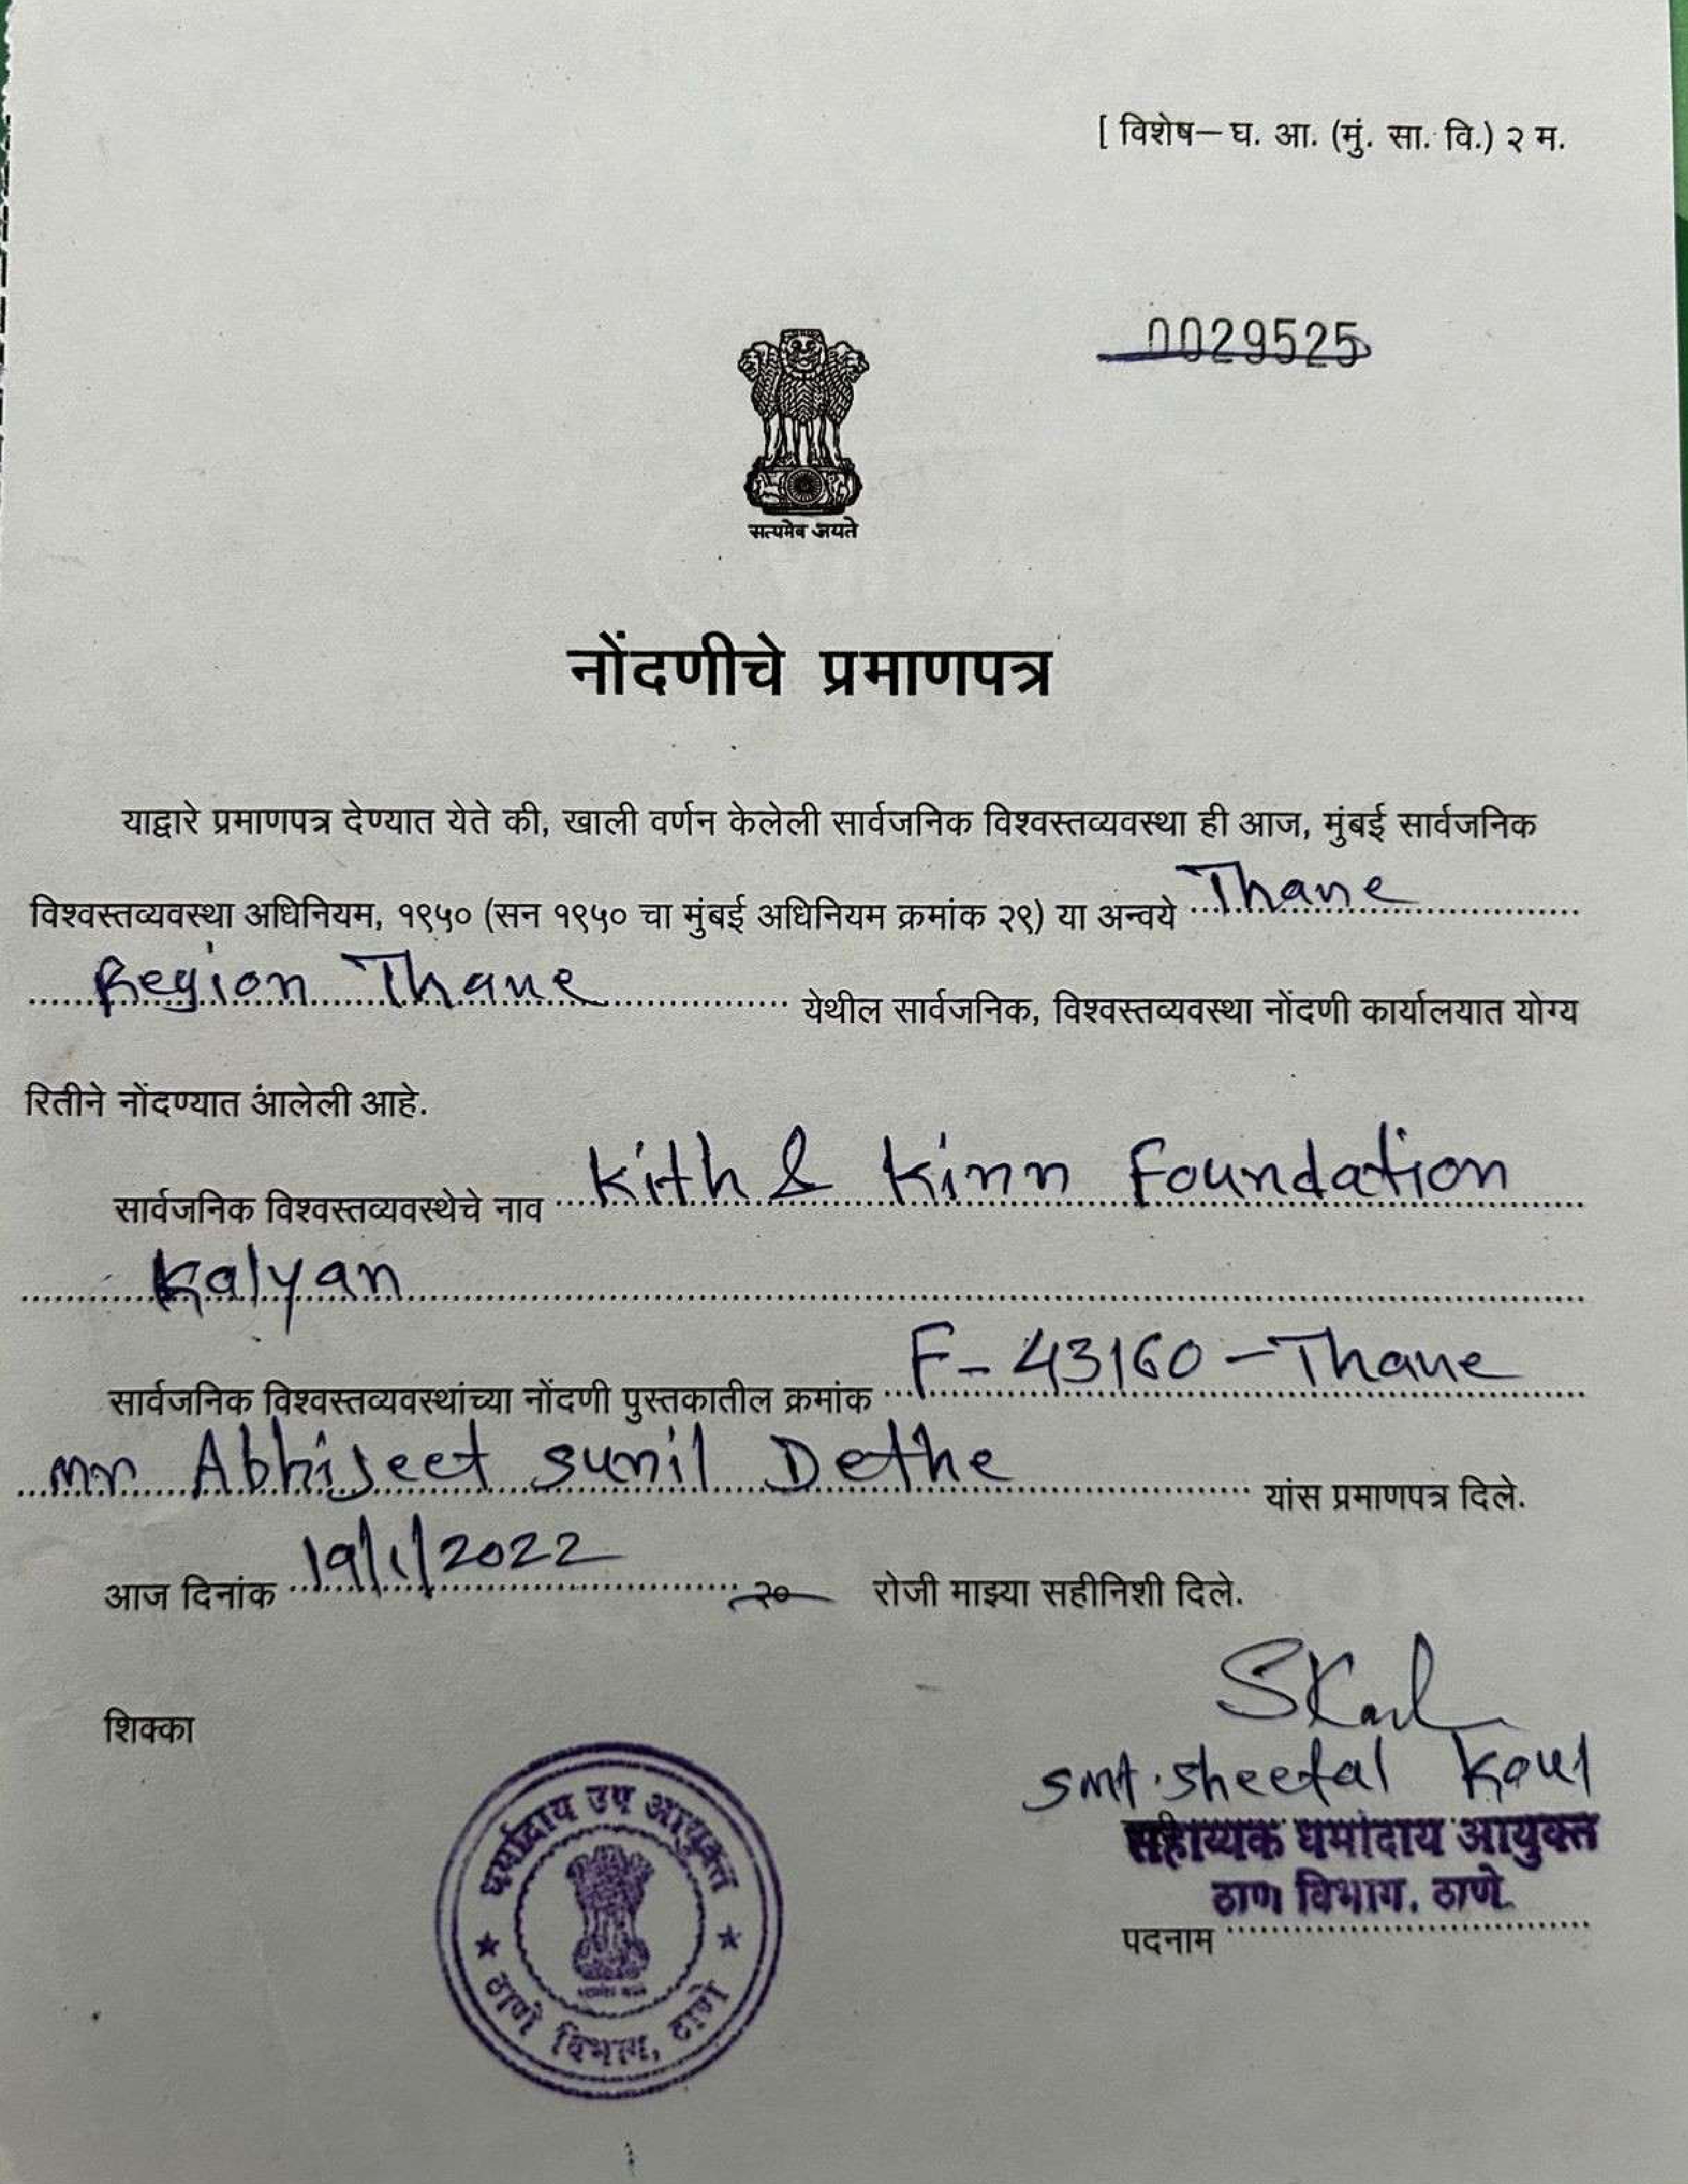 [ विशेष– घ. आ. (मुं. सा. वि.) २ म.
0029525
सत्यमेव जयते
नोंदणीचे प्रमाणपत्र
याद्वारे प्रमाणपत्र देण्यात येते की, खाली वर्णन केलेली सार्वजनिक विश्वस्तव्यवस्था ही आज, मुंबई सार्वजनिक
विश्वस्तव्यवस्था अधिनियम, १९५० (सन १९५० चा मुंबई अधिनियम क्रमांक २९) या अन्वये Thane
Region Thane येथील सार्वजनिक, विश्वस्तव्यवस्था नोंदणी कार्यालयात योग्य
रितीने नोंदण्यात आलेली आहे.
सार्वजनिक विश्वस्तव्यवस्थेचे नाव Kith & Kinn Foundation
Kalyan
सार्वजनिक विश्वस्तव्यवस्थांच्या नोंदणी पुस्तकातील क्रमांक F- 43160 -Thane
mr Abhijeet sunil Dethe यांस प्रमाणपत्र दिले.
आज दिनांक 19/1/2022 २० रोजी माझ्या सहीनिशी दिले.
SKaul
शिक्का
smt. sheetal Koul
सहाय्यक धर्मादाय आयुक्त
ठाणे विभाग, ठाणे.
पदनाम
धर्मादाय उप आयुक्त
ठाणे विभाग, ठाणे